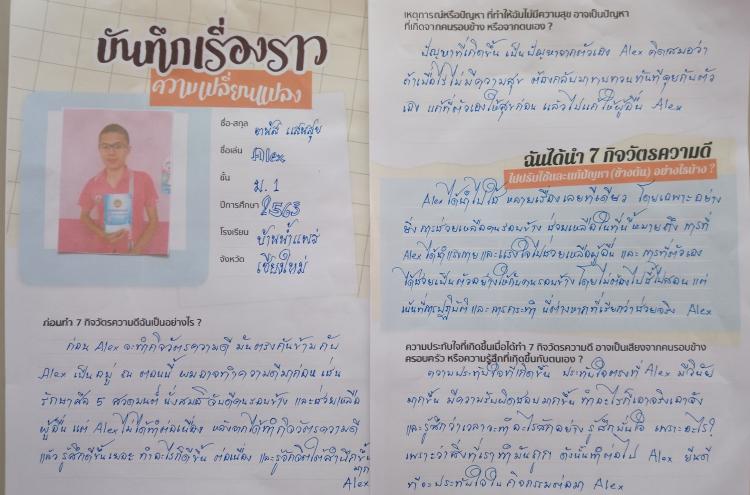 บันทึกเรื่องราว
ความเปลี่ยนแปลง
ชื่อ-สกุล แสนสุข
ชื่อเล่น Alex
ชั้น ม. 1
ปีการศึกษา 2563
โรงเรียน บ้านน้ำแพร่
จังหวัด เชียงใหม่
ก่อนทำ 7 กิจวัตรความดีฉันเป็นอย่างไร ?
ก่อน Alex จะทำกิจวัตรความดี มันตรงกันข้าม กับ
Alex เป็นอยู่ ณ ตอนนี้ ผมอาจทำความดีมาก่อน เช่น
รักษาศีล 5 สวดมนต์ นั่งสมาธิ จับดีคนรอบข้าง และช่วยเหลือ
ผู้อื่น แต่ Alex ไม่ได้ทำต่อเนื่อง หลังจากได้ทำกิจวัตรความดี
แล้ว รู้สึกดีขึ้นเยอะ ทำอะไรก็ดีขึ้น ต่อเนื่อง และรู้จักจิตใต้สำนึกขึ้น
มาก
Alex
เหตุการณ์หรือปัญหา ที่ทำให้ฉันไม่มีความสุข อาจเป็นปัญหา
ที่เกิดจากคนรอบข้าง หรือจากตนเอง ?
ปัญหาที่เกิดขึ้น เป็นปัญหาจากตัวเอง Alex คิดเสมอว่า
ถ้าเมื่อไรไม่มีความสุข ต้องกลับมาทบทวนทันทีคุยกับตัว
เอง แก้ที่ตัวเองให้สุขก่อน แล้วไปแก้ให้ผู้อื่น Alex
ฉันได้นำ 7 กิจวัตรความดี
ไปปรับใช้และแก้ปัญหา (ข้างต้น) อย่างไรบ้าง ?
Alex ได้นำไปใช้ หลายเรื่องเลยทีเดียว โดยเฉพาะอย่าง
ยิ่ง การช่วยเหลือคนรอบข้าง ช่วยเหลือในที่นี้หมายถึง การที่
Alex ได้นำแรงกาย และแรงใจไปช่วยเหลือผู้อื่น และ การที่ตัวเอง
ได้ช่วยเป็นตัวอย่างให้กับคนรอบข้าง โดยไม่ต้องไปชี้ไปสอน แต่
เน้นที่การปฏิบัติ และ การกระทำ นี่ต่างหากที่เรียกว่าช่วยจริง Alex
ความประทับใจที่เกิดขึ้นเมื่อได้ทำ 7 กิจวัตรความดี อาจเป็นเสียงจากคนรอบข้าง
ครอบครัว หรือความรู้สึกที่เกิดขึ้นกับตนเอง ?
ความประทับใจที่เกิดขึ้น ประทับใจตรงที่ Alex มีวินัย
มากขึ้น มีความรับผิดชอบมากขึ้น ทำอะไรก็เอาจริงเอาจัง
และรู้สึกว่าเวลาจะทำอะไรสักอย่าง รู้สึกมั่นใจ เพราะอะไร?
เพราะว่าสิ่งที่เราทำมันถูก ดังนั้นทำต่อไป Alex ยินดี
ที่จะประทับใจใน กิจกรรมต่อมา Alex